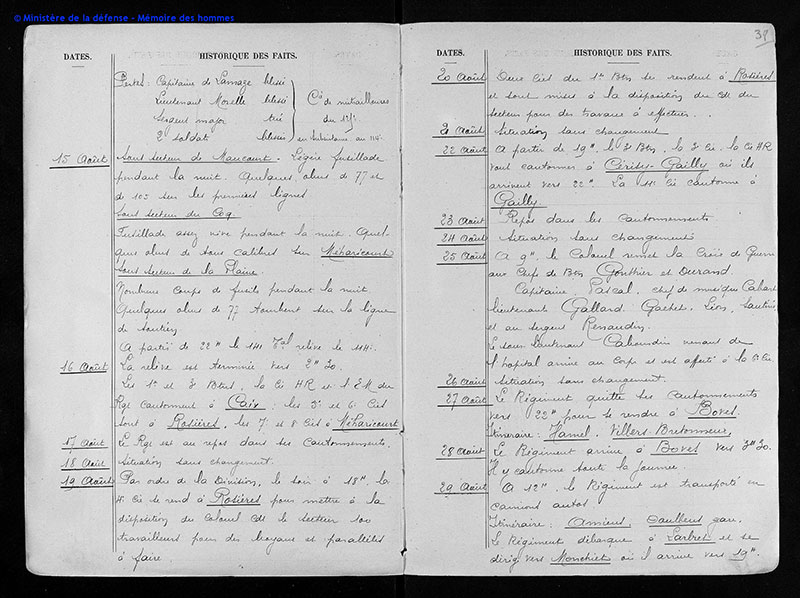 © Ministère de la défense - Mémoire des hommes
DATES. HISTORIQUE DES FAITS.
Pertes: Capitaine de blessé
Lieutenant Morelle blessé Cie de mitrailleuses
Sergent major tué du
2 soldats blessés
15 Août Sous secteur de Maucourt. Légère fusillade
pendant la nuit. Quelques obus de 77 et
de 105 sur les premières lignes
Sous secteur du Coq
Fusillade assez vive pendant la nuit. Quel-
ques obus de tous calibres sur Méharicourt
Sous secteur de la Plaine.
Nombreux coups de fusils pendant la nuit
Quelques obus de 77 tombent sur la ligne
de soutien
A partir de 22h le relève le
16 Août La relève est terminée vers 2h30.
Les 1er et 3 Btns, la Cie HR et l'E.M. du
Rgt cantonnent à Caix; les 5e et 6e Cies
sont à Rosières, les 7 et 8 Cies à Méharicourt
17 Août Le Rgt est au repos dans ses cantonnements.
18 Août Situation sans changement.
19 Août Par ordre de la Division, le soir à 18h, la
Cie se rend à Rosières pour mettre à la
disposition du Colonel Cdt le Secteur 100
travailleurs pour des boyaux et parallèles
à faire
DATES. HISTORIQUE DES FAITS.
20 Août Deux Cies du 1er Btn se rendent à Rosières
et sont mises à la disposition du Cdt du
Secteur pour des travaux à effectuer.
21 Août Situation sans changement
22 Août A partir de 19h, le Btn, la Cie, la Cie HR
vont cantonner à Cerisy-Gailly où ils
arrivent vers 22h. La Cie cantonne à
Gailly.
23 Août Repos dans les cantonnements
24 Août Situation sans changements
25 Août A 9h, le Colonel remet la Croix de Guerre
aux Chefs de Btn Gonthier et Durand
Capitaine Pascal, chef de musique
lieutenant Gallard, Gachet, Léon,
et au sergent Renaudin.
Le sous lieutenant venant de
l'hôpital arrive au Corps et est affecté à la Cie.
26 Août Situation sans changement.
27 Août Le Régiment quitte ses cantonnements
vers 22h pour se rendre à Boves.
Itinéraire: Hamel, Villers-Bretonneux
28 Août Le Régiment arrive à Boves vers 3h30.
Il y cantonne toute la journée.
29 Août A 12h, le Régiment est transporté en
camions autos
Itinéraire: Amiens, gare.
Le Régiment débarque à Larbret et se
dirige vers Monchiet où il arrive vers 19h.